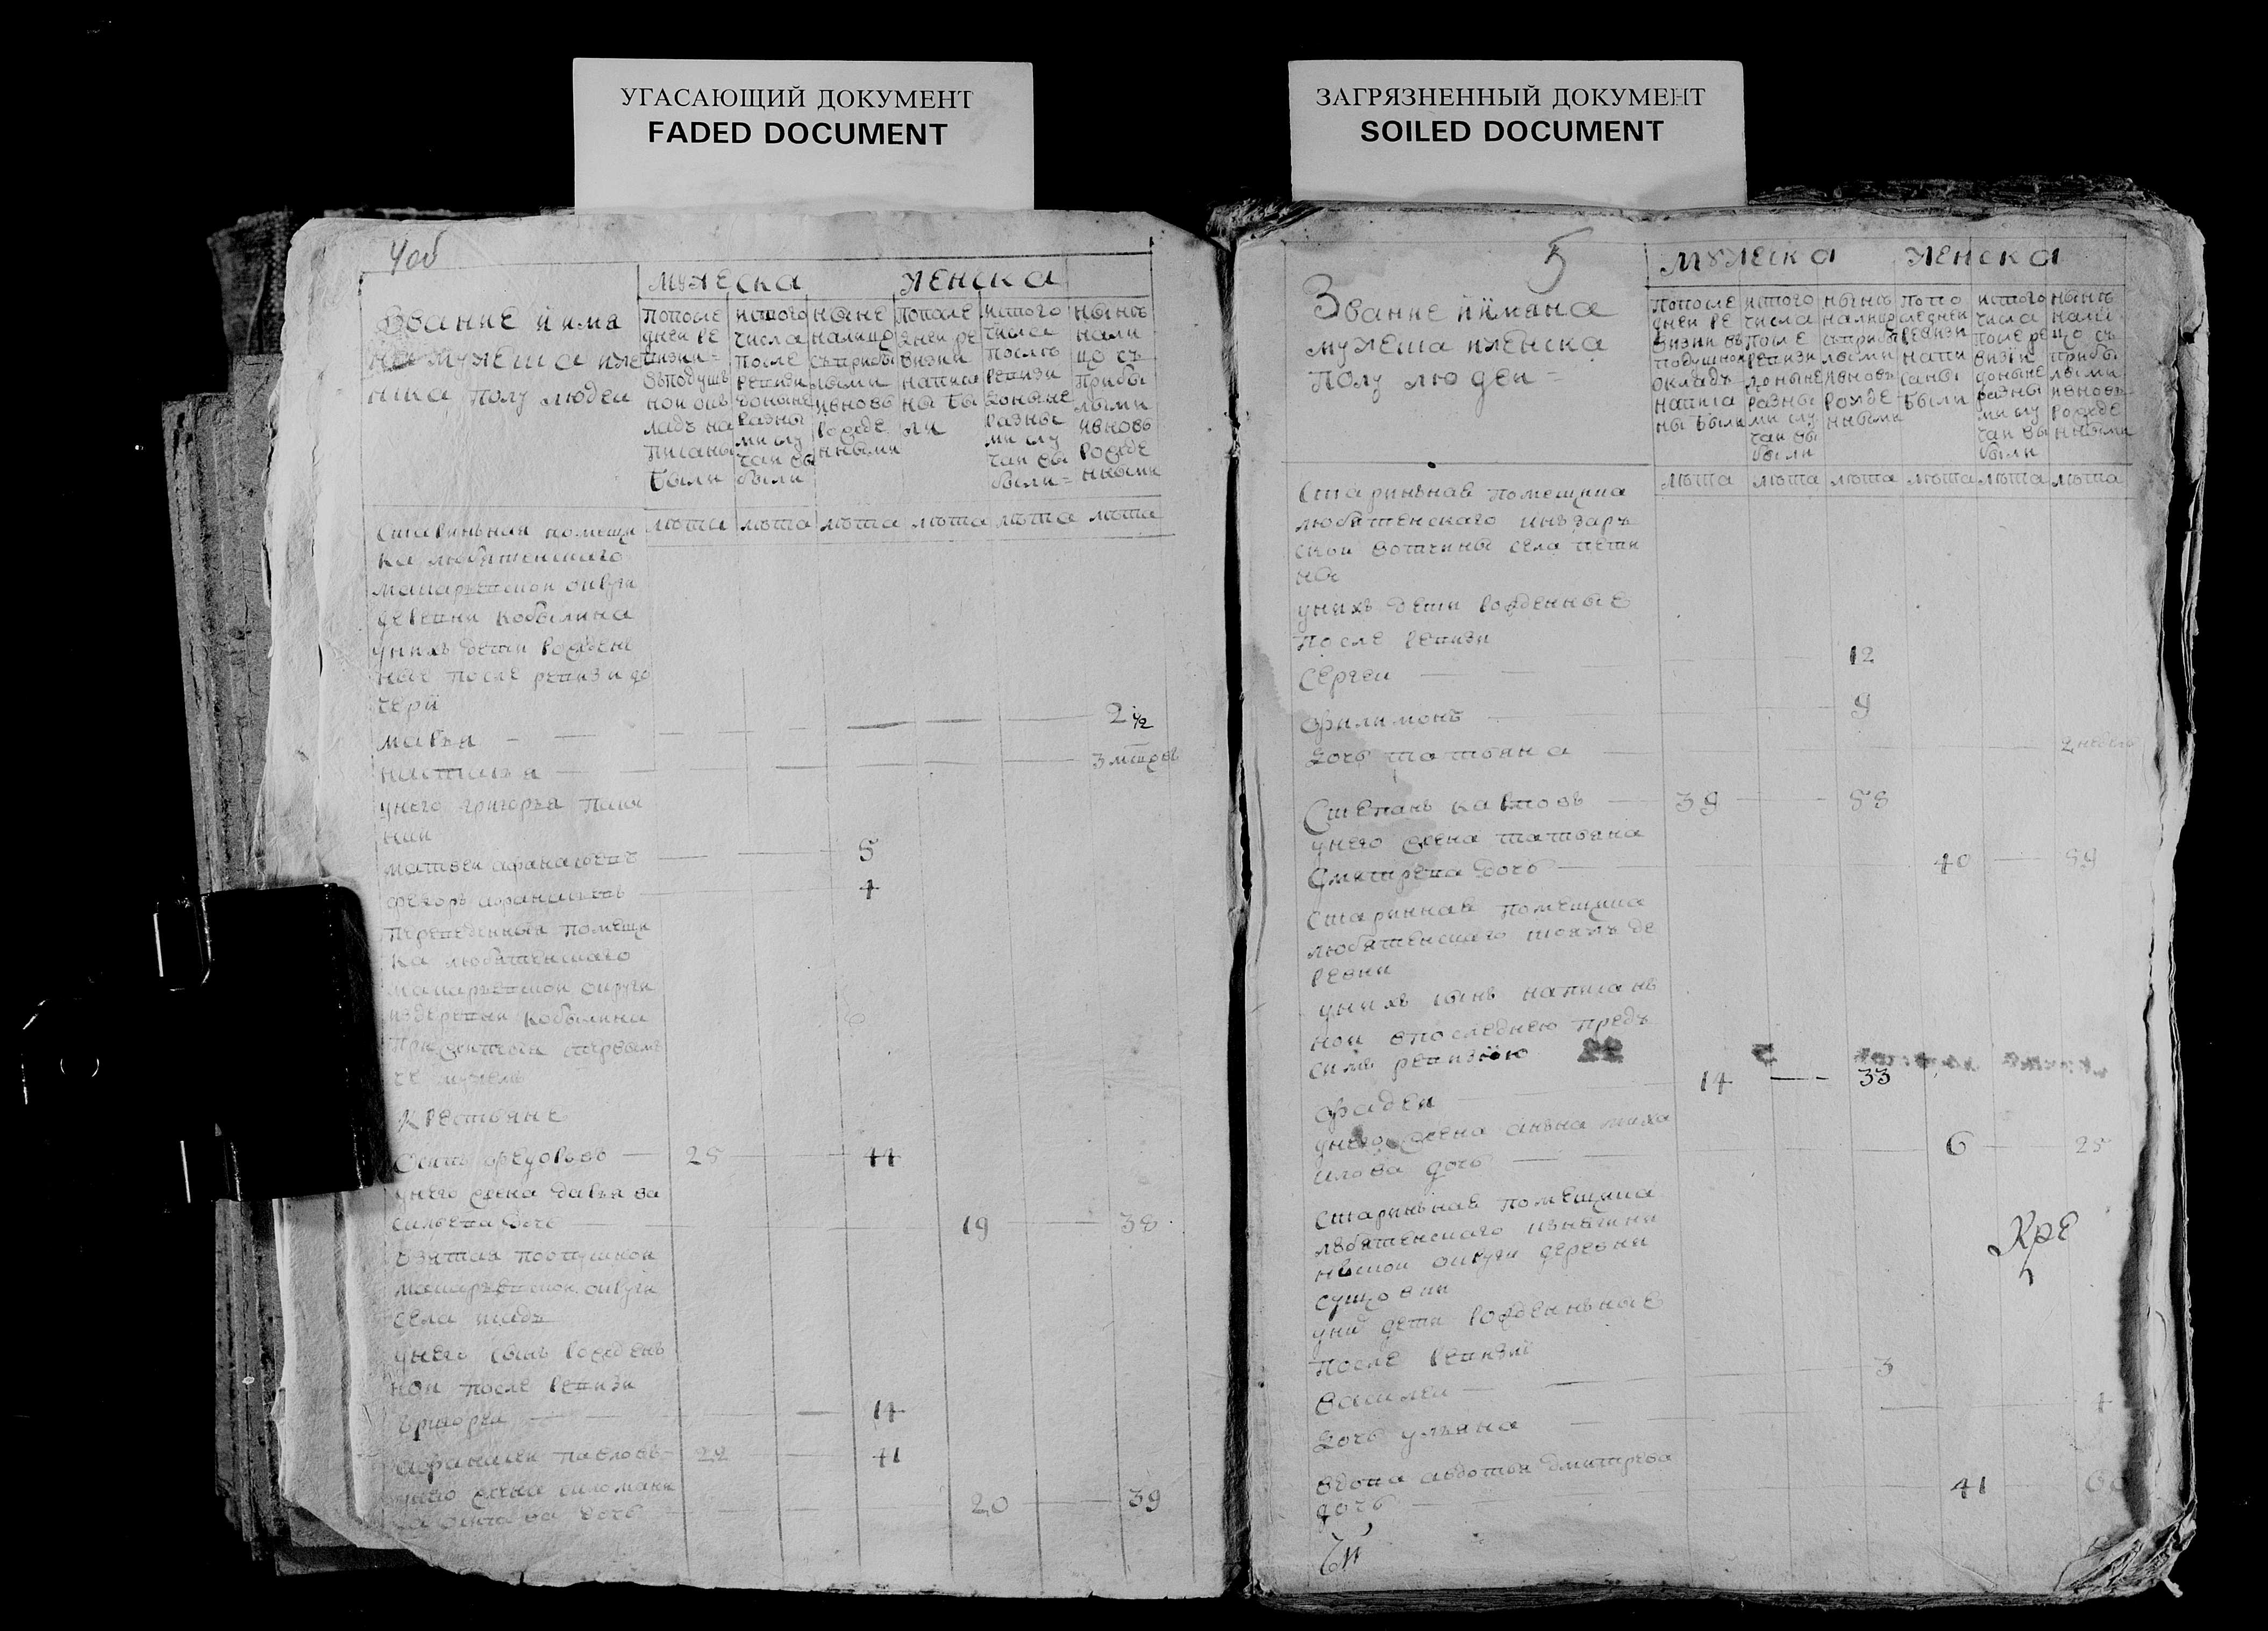 УГАСАЮЩИЙ ДОКУМЕНТ
FADED DOCUMENT
ЗАГРЯЗНЕННЫЙ ДОКУМЕНТ
SOILED DOCUMENT
4об
мужеска женска
Звание и имя
мужеска
полу людей
пополе
дней ре
визии
въподуш
ной
ладъ на
писаны
были
истого
числа
после
ревизи
доныне
разны
ми слу
чаи вы
были
ныне
налицо
съприбы
лыми
ивновь
рожде
нными
пополе
дней ре
визии
написа
ны бы
ли
истого
числа
послъ
ревизи
доныне
разны
ми слу
чаи вы
были=
нынъ
нали
цо съ
прибы
лыми
ивновь
рожде
нными
лъта лъта лъта лъта лъта лъта
Стариньная помещи
ка любятенскаго
макарьевской округи
деревни кобылина
унихъ дети рожден
ные после ревизи до
чери
марья 2 1/2
настасья 3 мъсецов
унего григорья
матвеи афанасьевъ 5
федоръ афанасьевъ 4
переведенныя помещи
ка любятенскаго
макарьевской округи
издеревни кобылина
крестьяне
Осипъ федоровъ 25 44
унего жена дарья ва
сильева дочь 19 38
взятая попокупкои
макарьевской округи
села
унего сынъ рожден
ной после ревизи
григореи 14
афанасеи павловъ 22 41
унего жена соломани
да дочь 20 39
5
мужеска женска
Звание иимена
мужеска иженска
полу людеи=
пополе
дней ре
визии въ
подушнои
окладъ
написа
ны были
истого
числа
после
ревизи
доныне
разны
ми слу
чаи вы
были
нынъ
налицо
съприбы
лыми
ивновь
рожде
нными
попо
следнеи
ревизи
напи
саны
были
истого
числа
после ре
визии
доныне
разны
ми слу
чаи вы
были
нынъ
нали
цо съ
прибы
лыми
ивновь
рожде
нными
лъта лъта лъта лъта лъта лъта
стариньная помещика
любятенскаго
скои вотчины села
унихъ дети рожденные
после ревизи
Сергеи 12
филимонъ 9
дочь татьяна 2 недели
Степанъ карповъ 39 58
унего жена татьяна
дмитрева дочь 40 59
старинная помещика
любятенскаго тоежъ де
ревни
унихъ сынъ написанъ
ной впоследнею предъ
симъ ревизиою
фадеи 14 33
унего жена анъна миха
илова дочь 6 25
стариньная помещика
любятенскаго
округи деревни
уних дети рожденьные
после ревизии
Василеи 3
дочь ульяна 4
вдова авдотья дмитрева
дочь 41 60
Кре